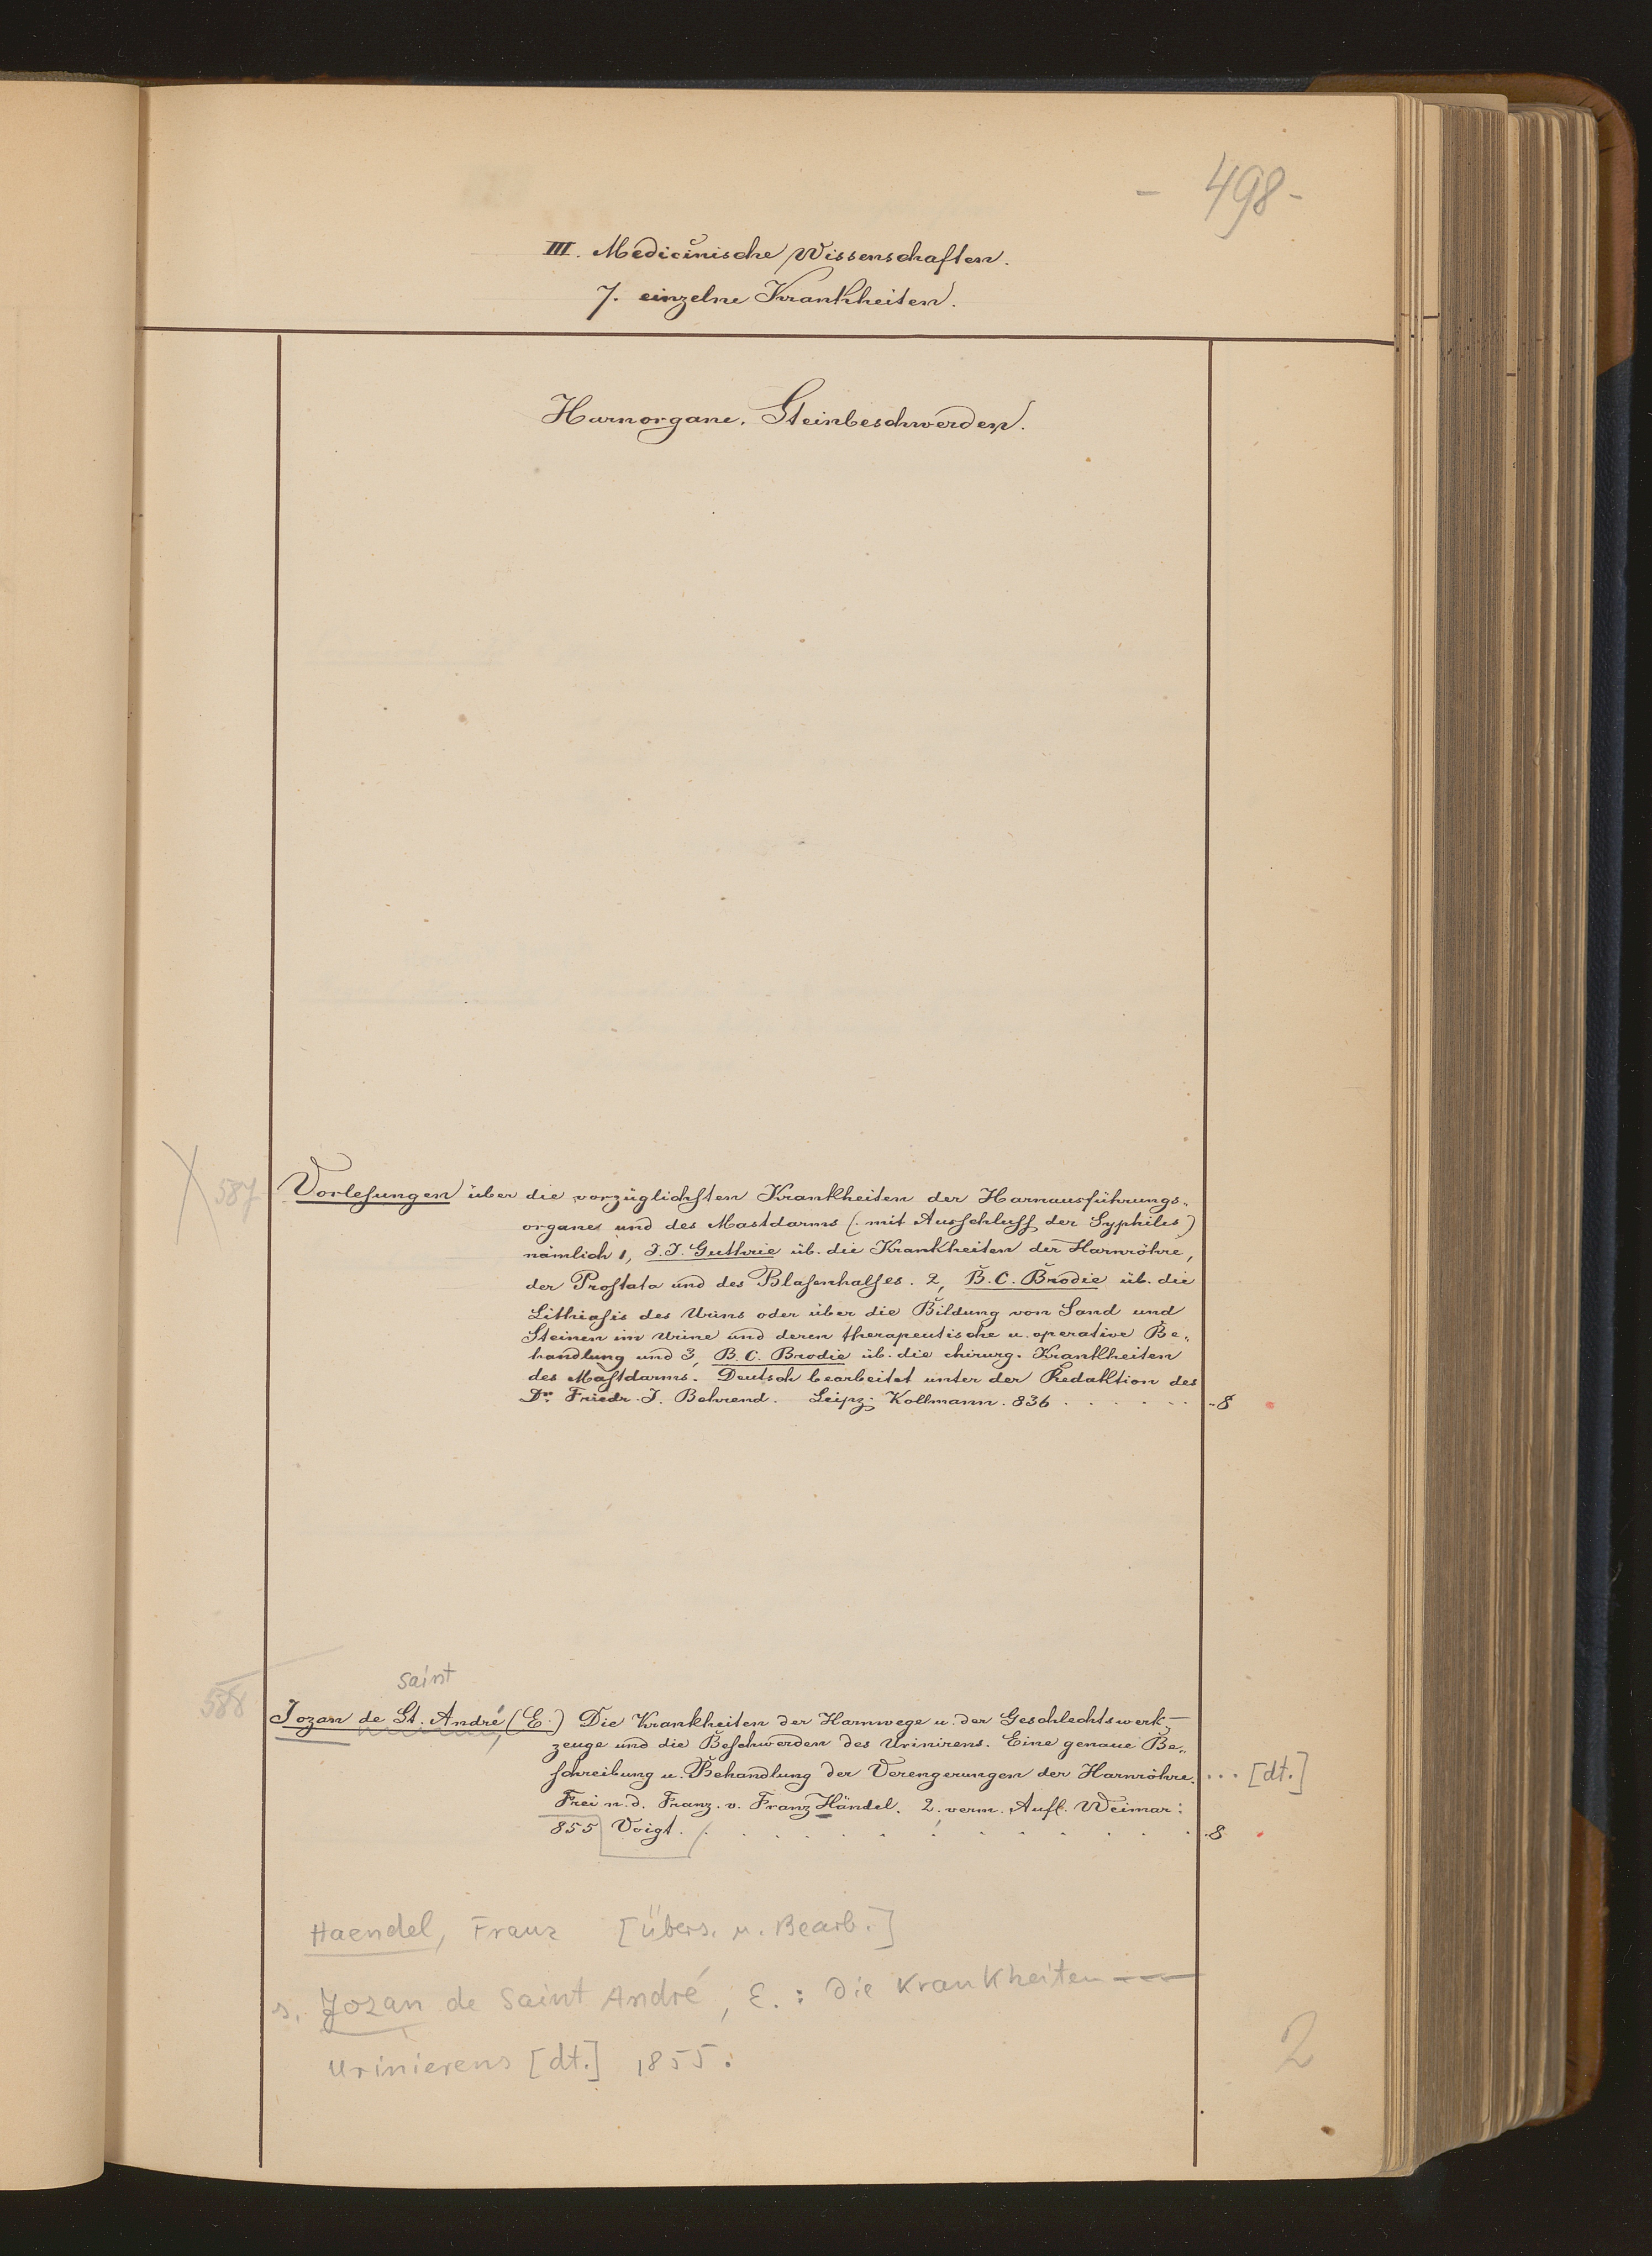 - 498 -
III. Medicinische Wissenschaften.
7. einzelne Krankheiten.
Harnorgane. Steinbeschwerden.
587 Vorlesungen über die vorzüglichsten Krankheiten der Harnausführungs-
organe und des Mastdarms (: mit Ausschluss der Syphilis)
nämlich 1, J. J. Guthrie üb. die Krankheiten der Harnröhre,
der Prostata und des Blasenhalses. 2, B. C. Brodie üb. die
Lithiasis des Urins oder über die Bildung von Sand und
Steinen im Urine und deren therapeutische u. operative Be-
handlung und 3, B. C. Brodie üb. die chirurg. Krankheiten
des Mastdarms. Deutsch bearbeitet unter der Redaktion des
Dr. Friedr. J. Behrend. Leipz. Kollmann. 836 . . . . . . 8
Saint
588 Jozan de St. André, (E.) Die Krankheiten der Harnwege u. der Geschlechtswerk-
zeuge und die Beschwerden des Urinirens. Eine genaue Be-
schreibung u. Behandlung der Verengerungen der Harnröhre. ... [dt.]
Frei n. d. Franz. v. Franz Händel. 2. verm. Aufl. Weimar:
855 Voigt. . . . . . . . . . . . 8
Haendel, Franz [Übers. u. Bearb.]
s. Jozan de Saint André, E.: Die Krankheiten ---
Urinierens [dt.] 1855.
2